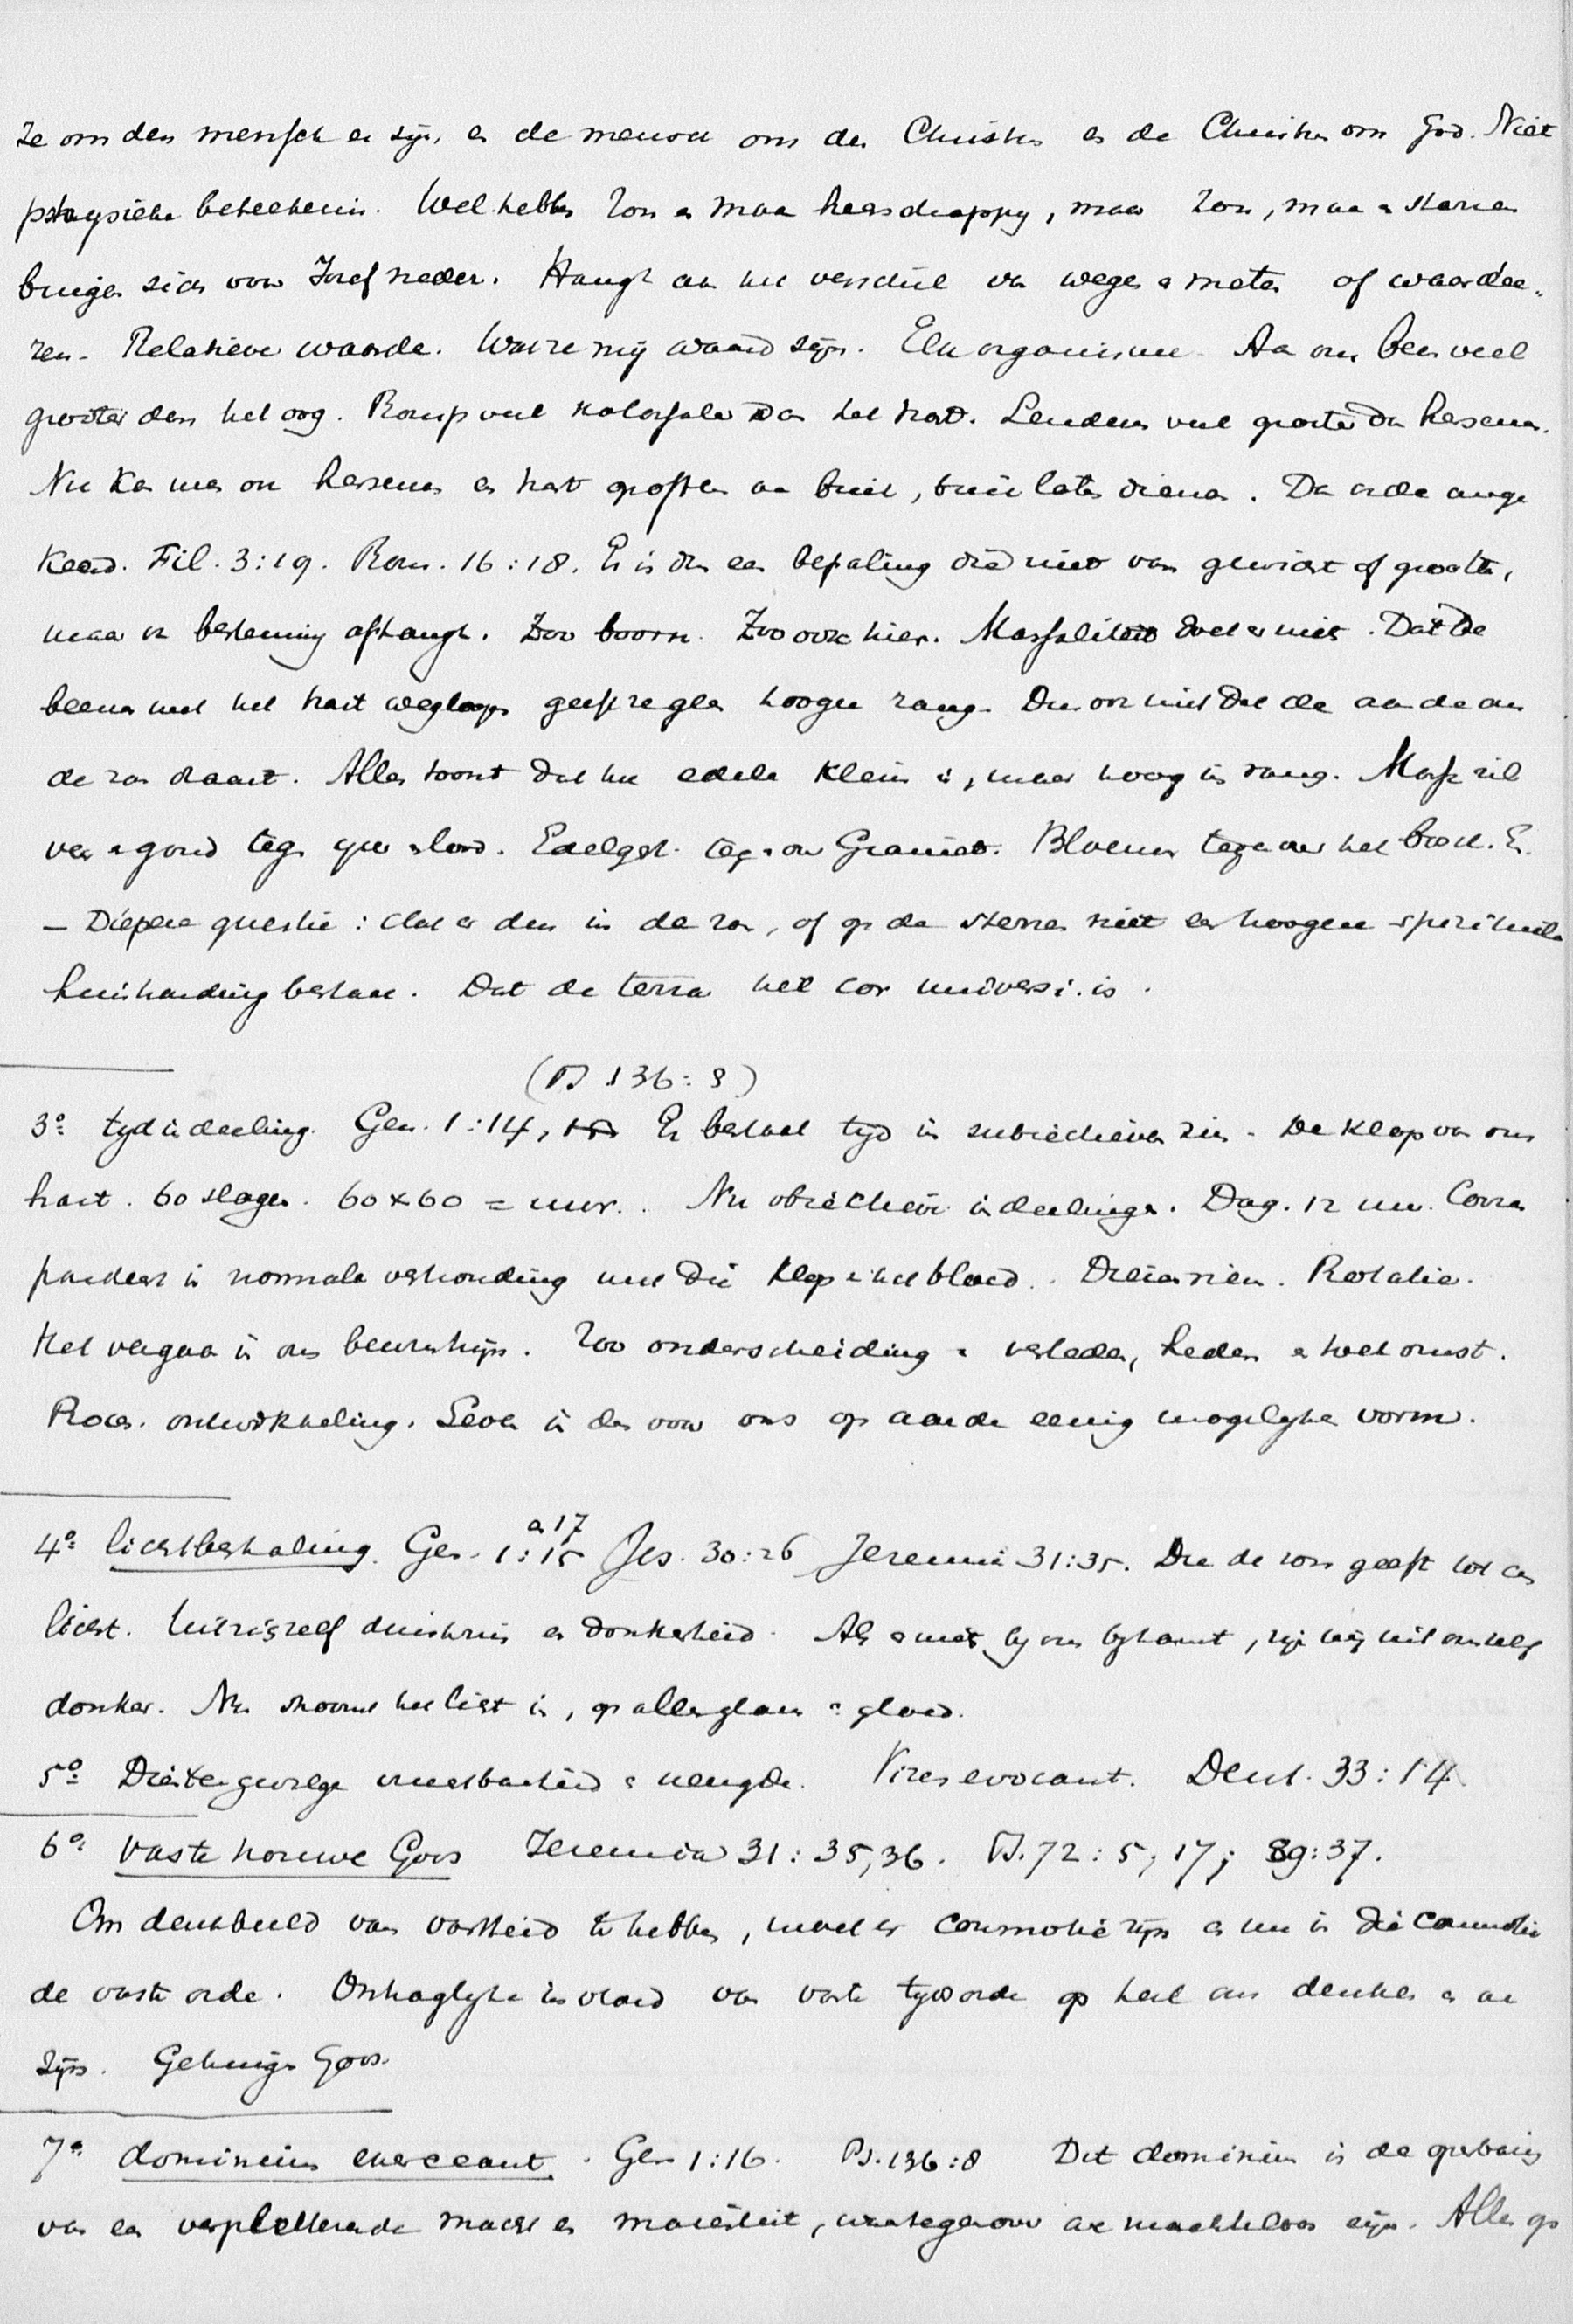 ze om den mensch er zijn, en de mensch om den Christus en de Christus om God. Niet
physieke beteekenis. Wel hebben zon en maan heerschappy, maar zon, maan en sterren
buigen zich voor Jozef neder. Hangt aan het verschil van wegen en meten of waardee-
ren. Relatieve waarde. Wat ze mij waard zijn. Elk organisme. Aan ons been veel
grooter dan het oog. Romp veel kolossaler dan het hart. Lenden veel grooter dan hersenen.
Nu kan men om hersenen en hart geven en buik, buik laten dienen. De orde omge
keerd. Fil. 3:19. Rom. 16:18. Er is dus een bepaling die niet van gewicht of grootte,
maar van bestemming afhangt. Zoo boom. Zoo ook hier. Massaliteit doet er niet. Dat de
beenen met het hart wegloopen geeft ze geen hooger rang. Dus ook niet dat de aarde om
de zon draait. Alles toont dat het edele klein is, maar hoog in rang. Massa zil
ver en goud tegen yzer en lood. Edelgest. tegenover Graniet. Bloemen tegenover het brood. E.
– Diepere questie: of er dan in de zon, of op de sterren niet een hoogere spiritueele
huishouding bestaat. Dat de terra het cor universi is.
(Ps. 136:8)
3º tydindeeling. Gen. 1:14, Er bestaat tyd in subiectieven zin. De klop van ons
hart. 60 slagen. 60 x 60 = uur. Nu obiectieve indeelingen. Dag. 12 uur. Corres
pondeert in normale verhouding met die klop in het bloed. Rotatie.
Het vergaan in ons bewustzijn. Zoo onderscheiding in verleden, heden en toekomst.
Proces. ontwikkeling. Leven is dus voor ons op aarde eenig mogelyke vorm.
4º lichtbestraling. Gen. 1:15 en 17 Jes. 30:26 Jeremia 31:35. Die de zon geeft tot een
licht. Uit zichzelf duisternis en donkerheid. Als er niets by ons bykomt, zijn wij uit onszelf
donker. Nu stroomt het licht in, op alles glans en gloed.
5º Dientengevolge vruchtbaarheid en vreugde. Vires evocant. Deut. 33:14
6º vaste trouwe Gods Jeremia 31:35,36. Ps. 72:5, 17; 89:37.
Om denkbeeld van vastheid te hebben, moet er commotie zijn en nu in die commotie
de vaste orde. Ontzaglyke invloed van vaste tydsorde op heel ons denken en ons
zijn. Getuige Gods.
7º dominium exerceant. Gen 1:16. Ps. 136:8 Dit dominium is de openbaring
van een verpletterende macht en maiesteit, waartegenover we machteloos zijn. Alles op